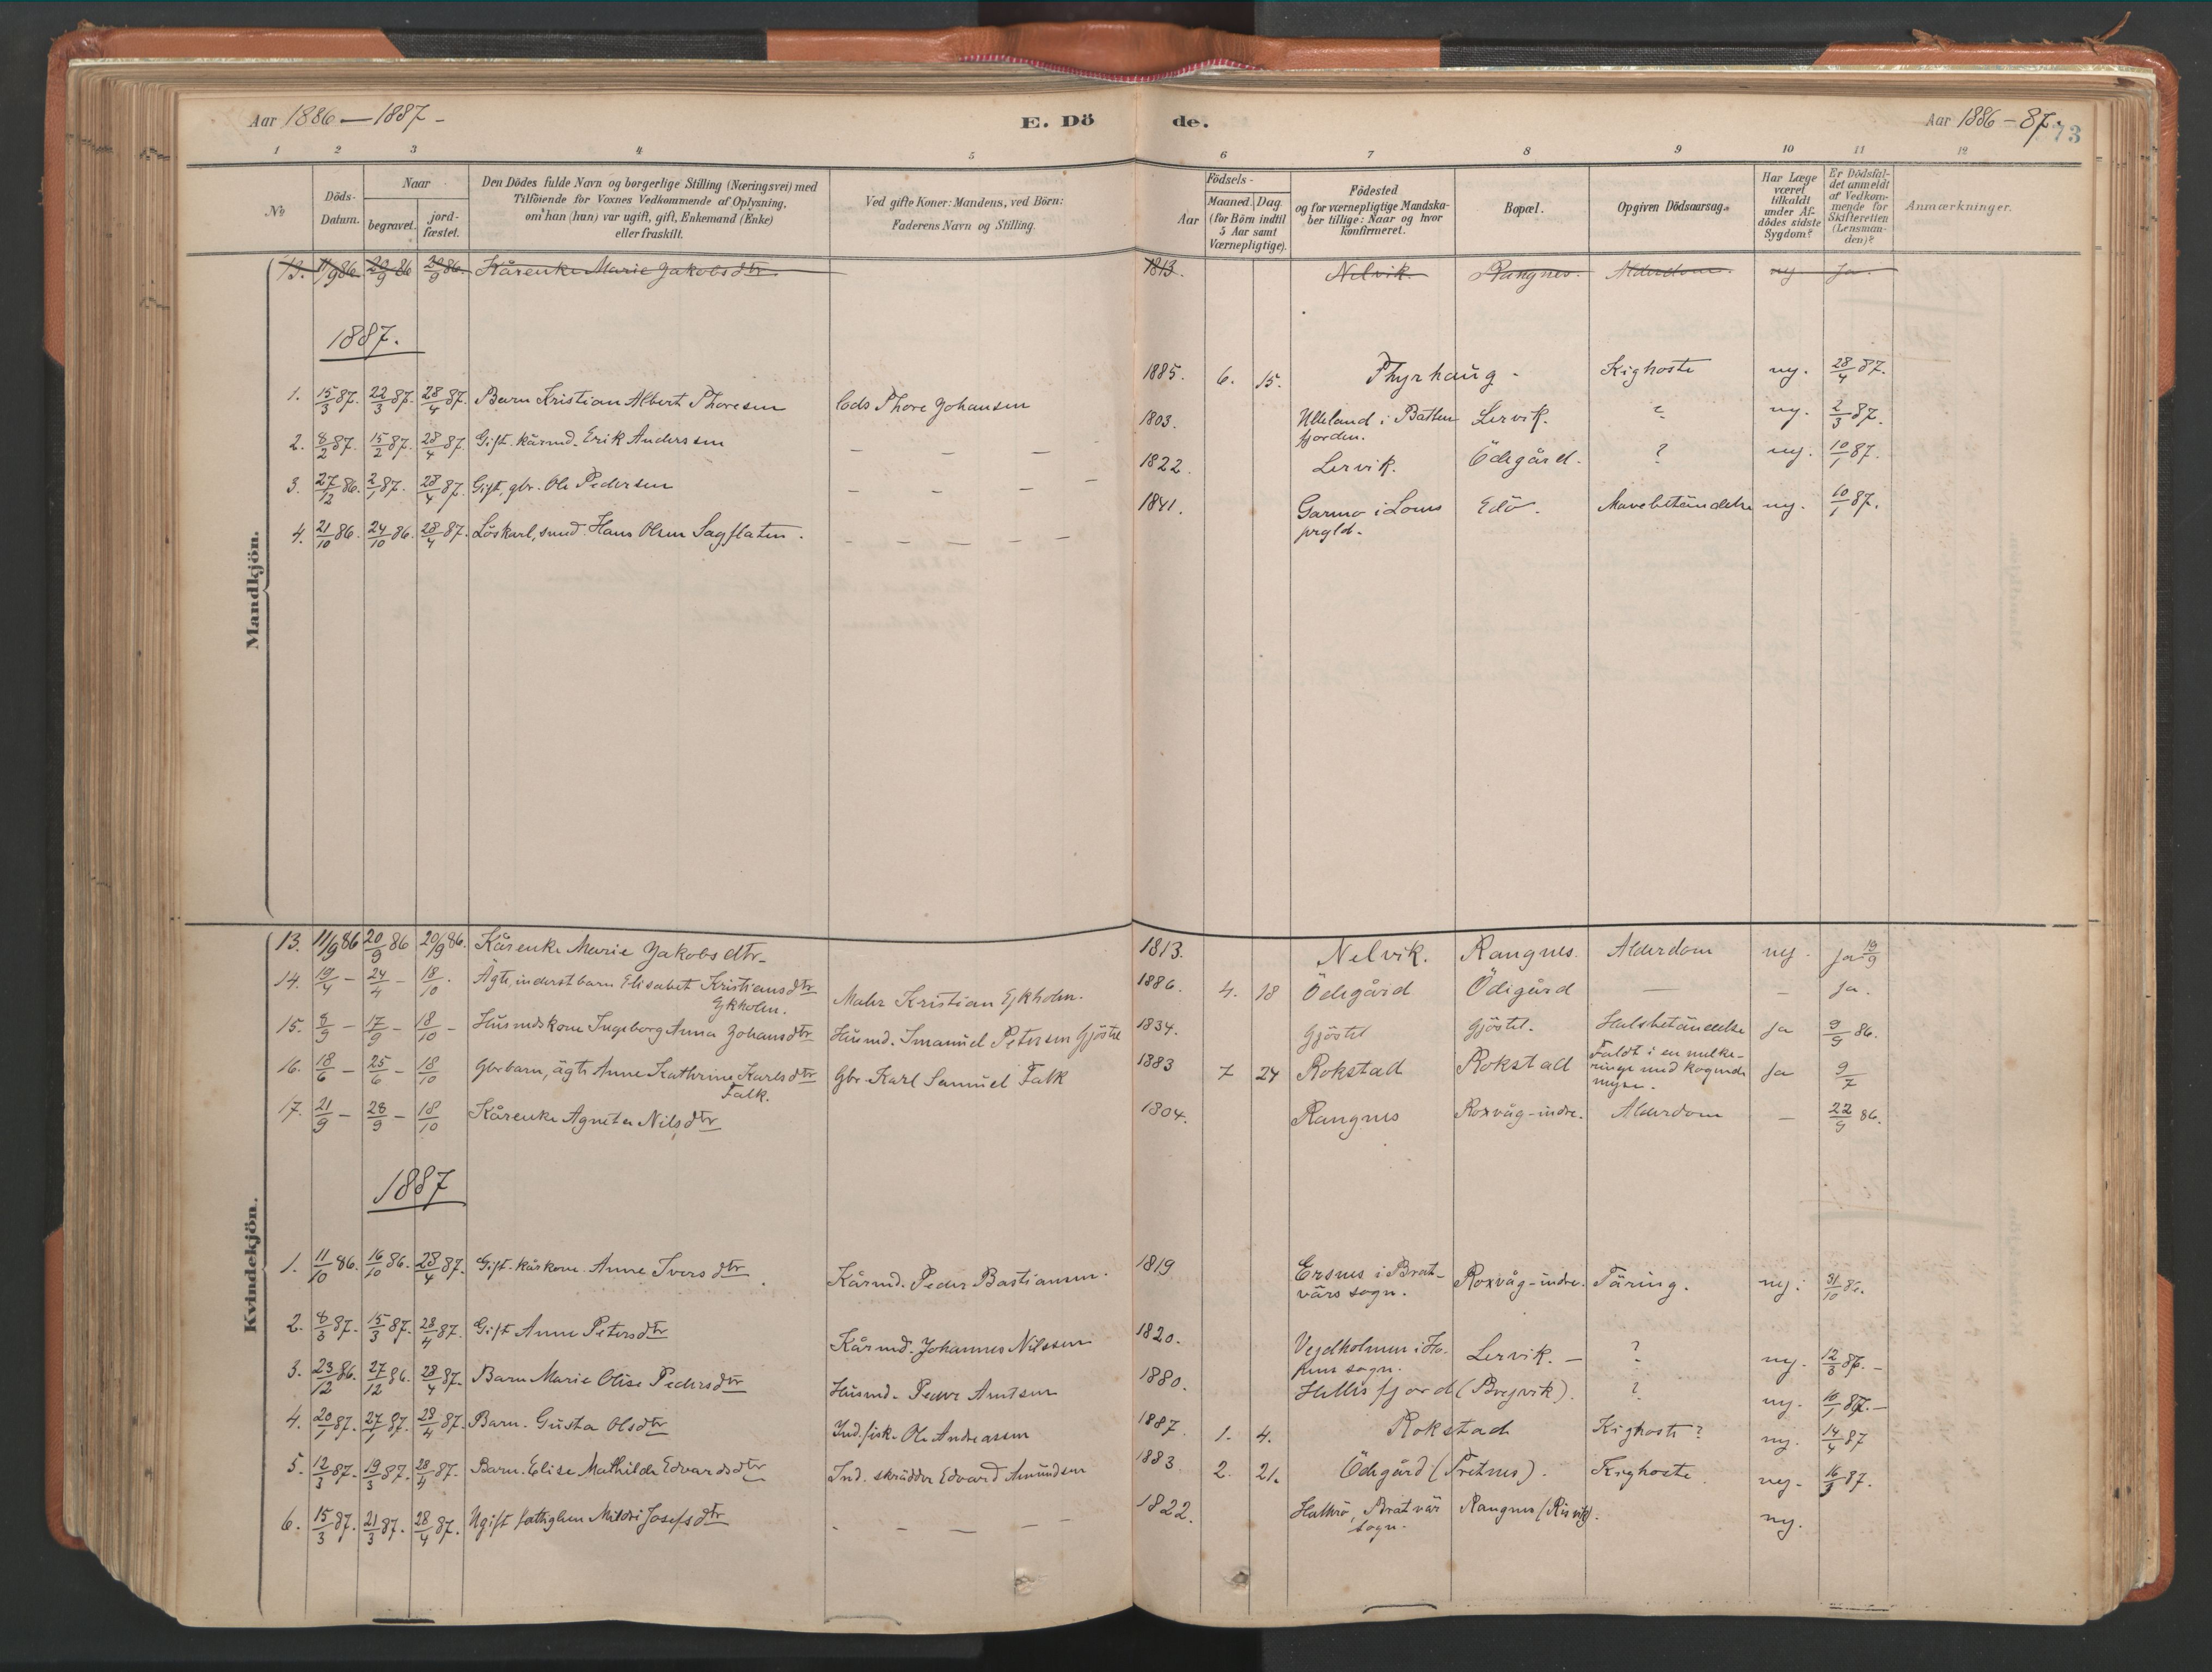 Aar 1886—1887 -
E. Dö
de.
Aar 1886-87.
73
1 2 3 4 5 6 7 8 9 10 11 12
No
Döds-Datum.
Naar
begravet.
jordfæstet.
Den Dödes fulde Navn og borgerlige Stilling (Næringsvei) med
Tilföiende for Voxnes Vedkommende af Oplysning,
om han (hun) var ugift, gift, Enkemand (Enke)
eller fraskilt.
Ved gifte Koner: Mandens, ved Börn:
Faderens Navn og Stilling.
Aar
Födsels-
Maaned. Dag
(for Börn indtil
5 Aar samt
Værnepligtige).
Födested
og for værnepligtige Mandska-
ber tillige: Naar og hvor
Konfirmeret.
Bopæl.
Opgiven Dödsaarsag.
Har Læge
været
tilkaldt
under Af-
dödes sidste
Sygdom?
Er Dödsfal-
det anmeldt
af Vedkom-
mende for
Skifteretten
(Lensman-
den)?
Anmærkninger.
Mandkjön.
13. 11/9 86. 20/9 86 20/9 86. Kårenke Marie Jakobsdtr 1813. Nelvik. Rangnes. Alderdom. nej Ja.
1887.
1. 15/3 87. 22/3 87. 28/4 87. Barn Kristian Albert Thoresen Thore Johansen 1885. 6. 15. Thyrhaug - Kighoste nej. 28/4 87.
2. 8/2 87. 15/2 87. 28/4 87. Gift. kårmd. Erik Anderssen — — — 1803. i Batten-
fjorden. Lervik. ? nej. 2/3 87.
3. 27/12 86. 2/1 87. 28/4 87. Gift, gbr. Ole Pedersen — — — — 1822. Lervik. Ödegård. ? nej. 10/1 87.
4. 21/10 86. 24/10 86. 28/4 87. Löskarl, smed. Hans Olsen Sagflaten. — — — — — 1841. Garmo i Loms
prgld. Edö. Mavebetändelse nej. 10/1 87.
Kvindekjön.
13. 11/9 86 20/9 86 20/9 86. Kårenke Marie Jakobsdtr. 1813. Nelvik. Rangnes. Alderdom nej. ja 19/9
14. 19/4 - 24/4 - 18/10. Ägte, inderstbarn Elisabet Kristiansdtr
Ekholm. Maler Kristian Ekholm. 1886. 4. 18 Ödegård Ödegård — — Ja.
15. 8/9 - 17/9 - 18/10 - Husmdskone Ingeborg Anna Johansdtr Husmd. Imanuel Petersen Gjöstel 1834. Gjöstel Gjöstel. Halsbetändelse Ja 9/9 86.
16. 18/6 - 25/6 - 18/10 Gbrbarn, ägte Anne Kathrine Karlsdtr
Falk. Gbr. Karl Samuel Falk 1883 7 24 Rokstad Rokstad Faldt i en melke-
ringe med kogende
myse. Ja 9/7
17. 21/9 - 28/9 - 18/10 Kårenke Agneta Nilsdtr 1804. Rangnes Roxvåg-indre. Alderdom — 22/9 86.
1887
1. 11/10 86. 16/10 86. 28/4 87. Gift. kårkone. Anne Iversdtr. Kårmd. Peder Bastiansen. 1819 Ersnes i Brat-
värs sogn. Roxvåg-indre. Täring. nej. 31/10 86.
2. 8/3 87. 15/3 87. 28/4 87. Gift Anne Petersdtr Kårmd. Johannes Nilssen 1820. Vejdholmen i Ho-
pens sogn. Lervik. — ? nej. 12/3 87. —
3. 23/12 86. 27/12 86. 28/4 87. Barn Marie Olise Pedersdtr Husmd. Peder Arntsen 1880. Hallisfjord (Brejvik). ? nej. 10/1 87. —
4. 20/1 87. 27/1 87. 28/4 87. Barn. Gusta Olsdtr Ind. fisk. Ole Andreassen 1887. 1. 4. Rokstad Kighoste? nej. 14/4 87
5. 12/3 87. 19/3 87. 28/4 87. Barn. Elise Mathilde Edvardsdtr Ind. skrädder Edvard Amundsen 1883 2. 21. Ödegård (Pretnes). Kighoste nej. 16/3 87.
6. 15/3 87. 21/3 87. 28/4 87. Ugift fattiglem Mildri Josefsdtr - — — — — 1822. Hallarö, Bratvär
sogn. Rangnes (Risvik). nej.